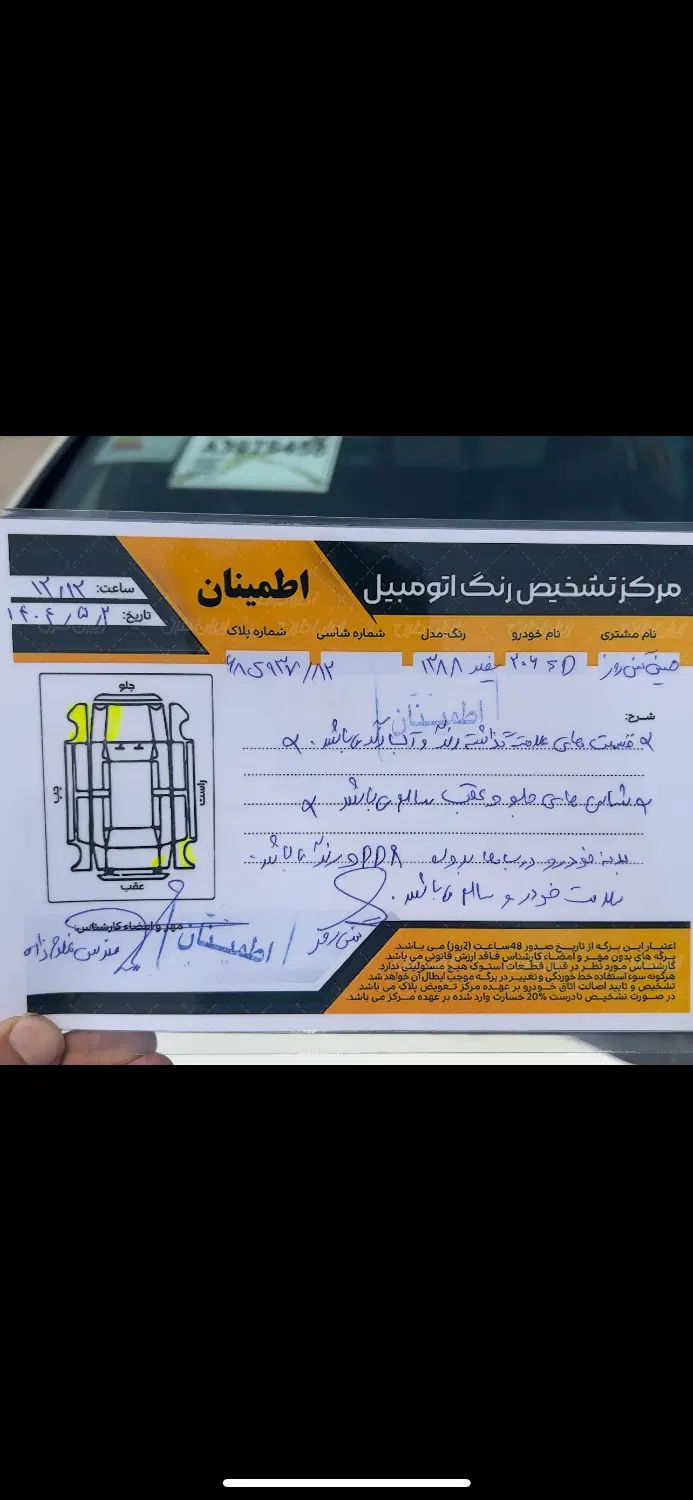 مرکز تشخیص رنگ اتومبیل
اطمینان
ساعت: ۱۲٫۱۲
تاریخ: ۱۴۰۴٫۵٫۲
نام مشتری
نام خودرو
رنگ-مدل
شماره شاسی
شماره پلاک
۲۰۶ SD
سفید ۱۳۸۸
شرح:
اطمینان
قسمت های علامت گذاشته رنگ و آبرنگ می باشد.
شاسی های جلو و عقب سالم می باشد
بدنه خودرو در سایر موارد PDR و رنگ می باشد.
سلامت خودرو سالم می باشد.
جلو
چپ
راست
عقب
مهر و امضاء کارشناس:
اطمینان
اعتبار این برگه از تاریخ صدور 48ساعت (2روز) می باشد.
برگه های بدون مهر و امضاء کارشناس فاقد ارزش قانونی می باشد.
کارشناس مورد نظر در قبال قطعات استوک هیچ مسئولیتی ندارد.
هرگونه سوء استفاده خط خوردگی و تغییر در برگه موجب ابطال آن خواهد شد.
تشخیص و تایید اصالت اتاق خودرو بر عهده مرکز تعویض پلاک می باشد.
در صورت تشخیص نادرست 20% خسارت وارد شده بر عهده مرکز می باشد.